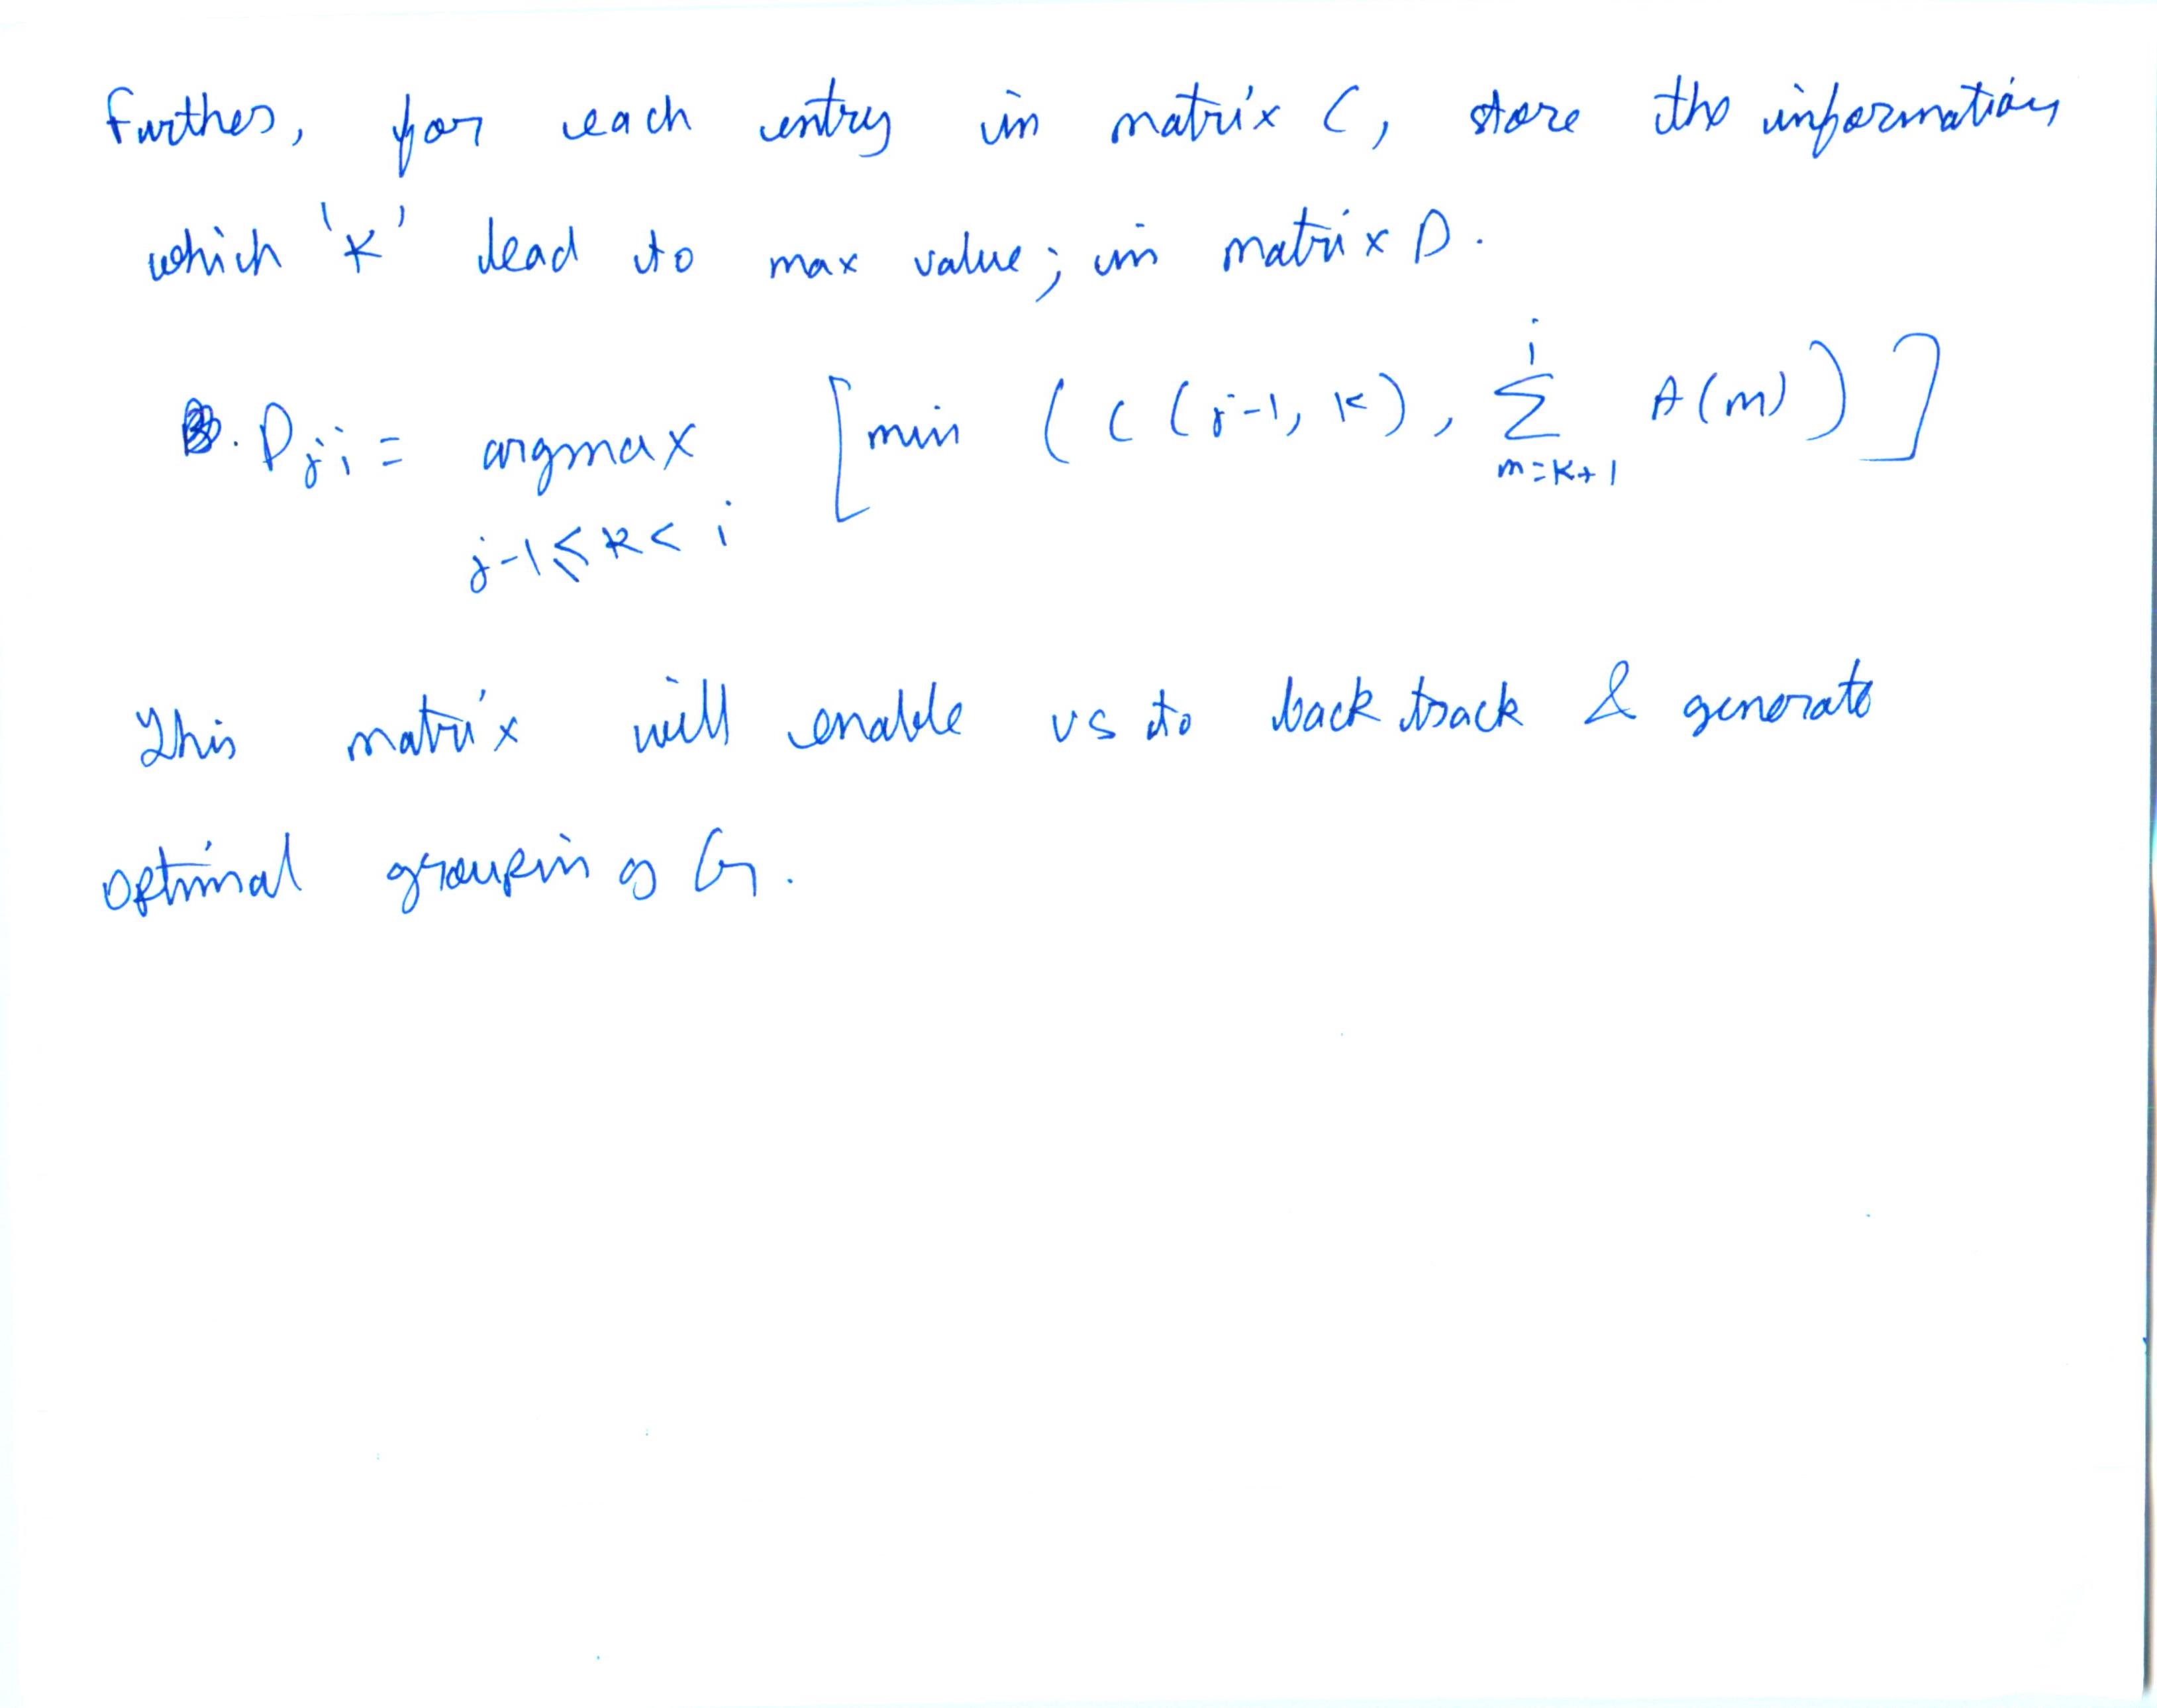 Further, for each entry in matrix C, store the information
which 'K' lead to max value; in matrix D.
D_{ji} = argmax_{j-1≤k<i} [min (C(j-1, k), \sum_{m=k+1}^{i} A(m))]
This matrix will enable us to back track & generate
optimal grouping G.